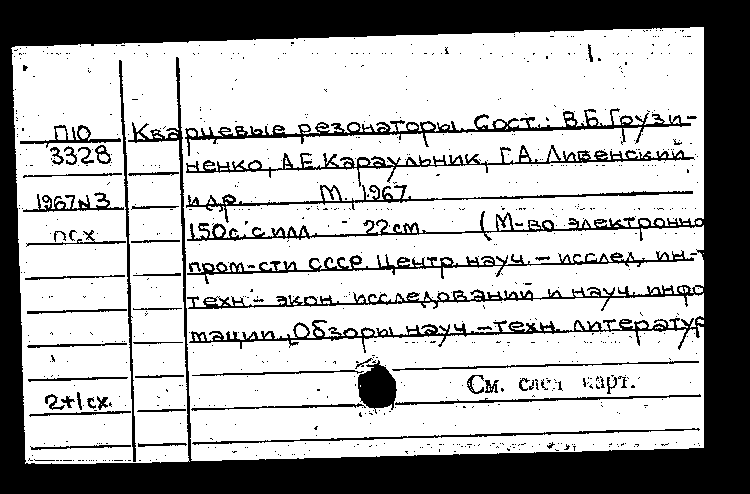 1.
П10 Кварцевые резонаторы. Сост.: В.Б.Грузи-
3328 ненко, А.Е.Караульник, Г.А. Ливенский
1967 №3 и др. М., 1967.
псх 150с. с илл. 22см. (М-во электронно
пром-сти СССР. Центр. науч.-исслед. ин-т
техн.-экон. исследований и науч. инфо
мации. Обзоры науч.-техн. литератур
См. след карт.
2+1сх.